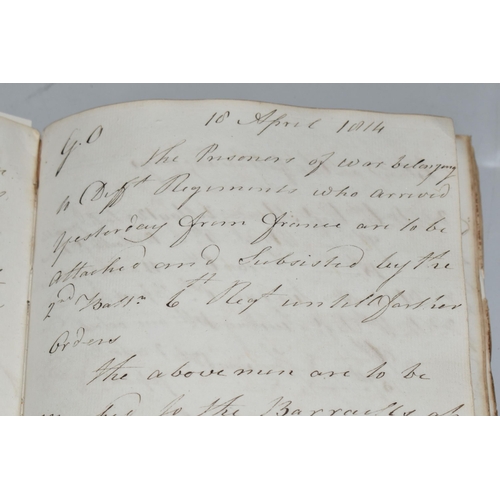 18 April 1814
G.O
The Prisoners of war belonging
to Difft Regiments who arrived
yesterday from france are to be
attached and Subsisted by the
2nd Battn 6th Regt untill farther
Orders
The above men are to be
to the Barracks at